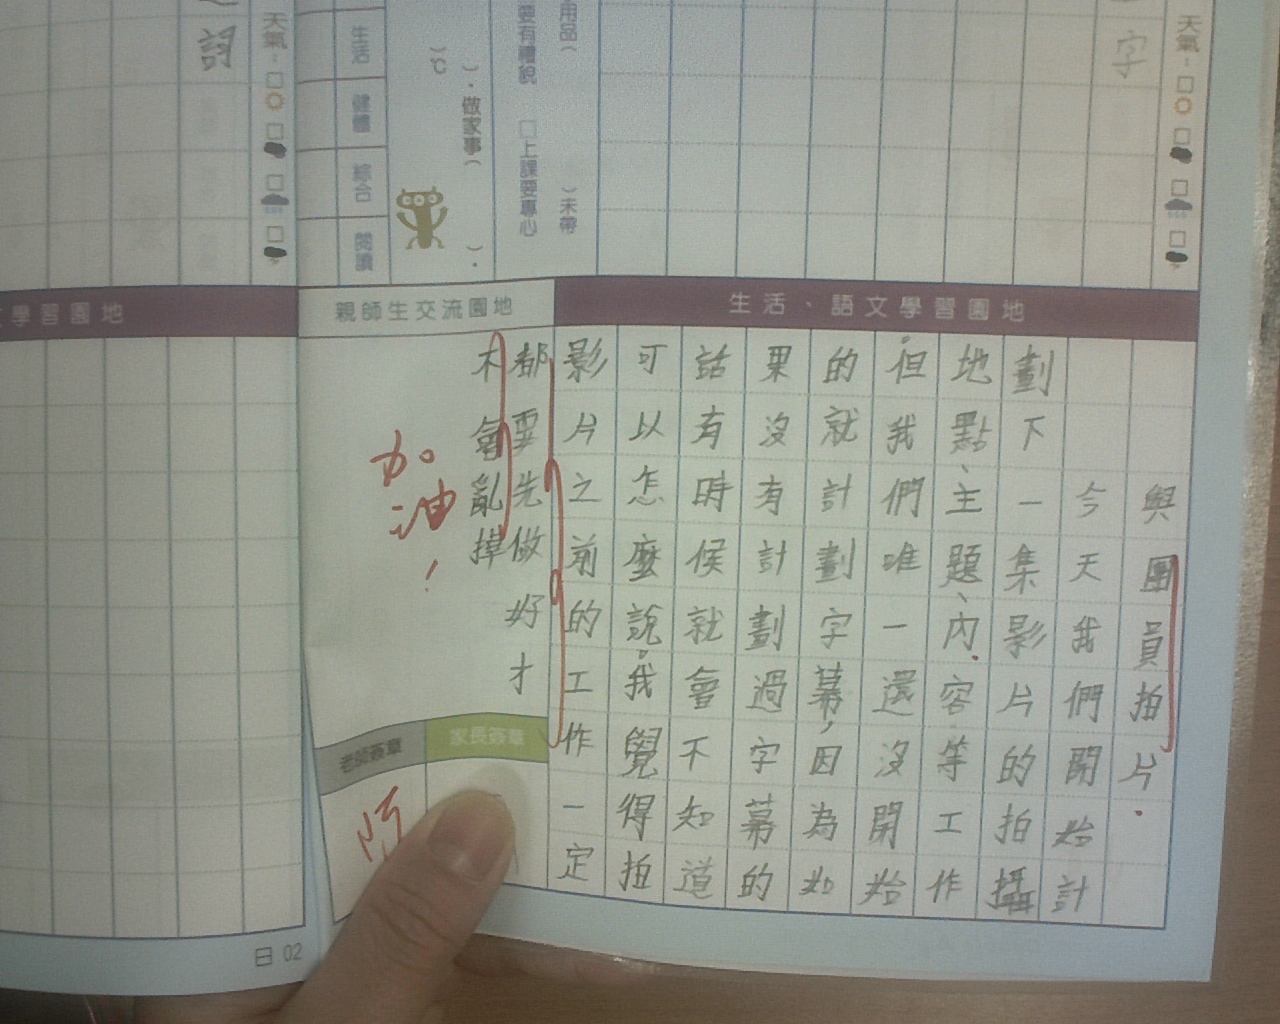 天氣：
字
用品（
）未帶
要有禮貌
□上課要專心
）．做家事（
）．
）℃
生活
健體
綜合
閱讀
天氣：
詞
生活、語文學習園地
與團員拍片．
今天我們開始計
劃下一集影片的拍攝
地點、主題、內容等工作
，但我們唯一還沒開始
的就計劃字幕，因為如
果沒有計劃過字幕的
話有時候就會不知道
可以怎麼說，我覺得拍
影片之前的工作一定
都要先做好才
不會亂掉
親師生交流園地
加油！
家長簽章
老師簽章
學習園地
日 02